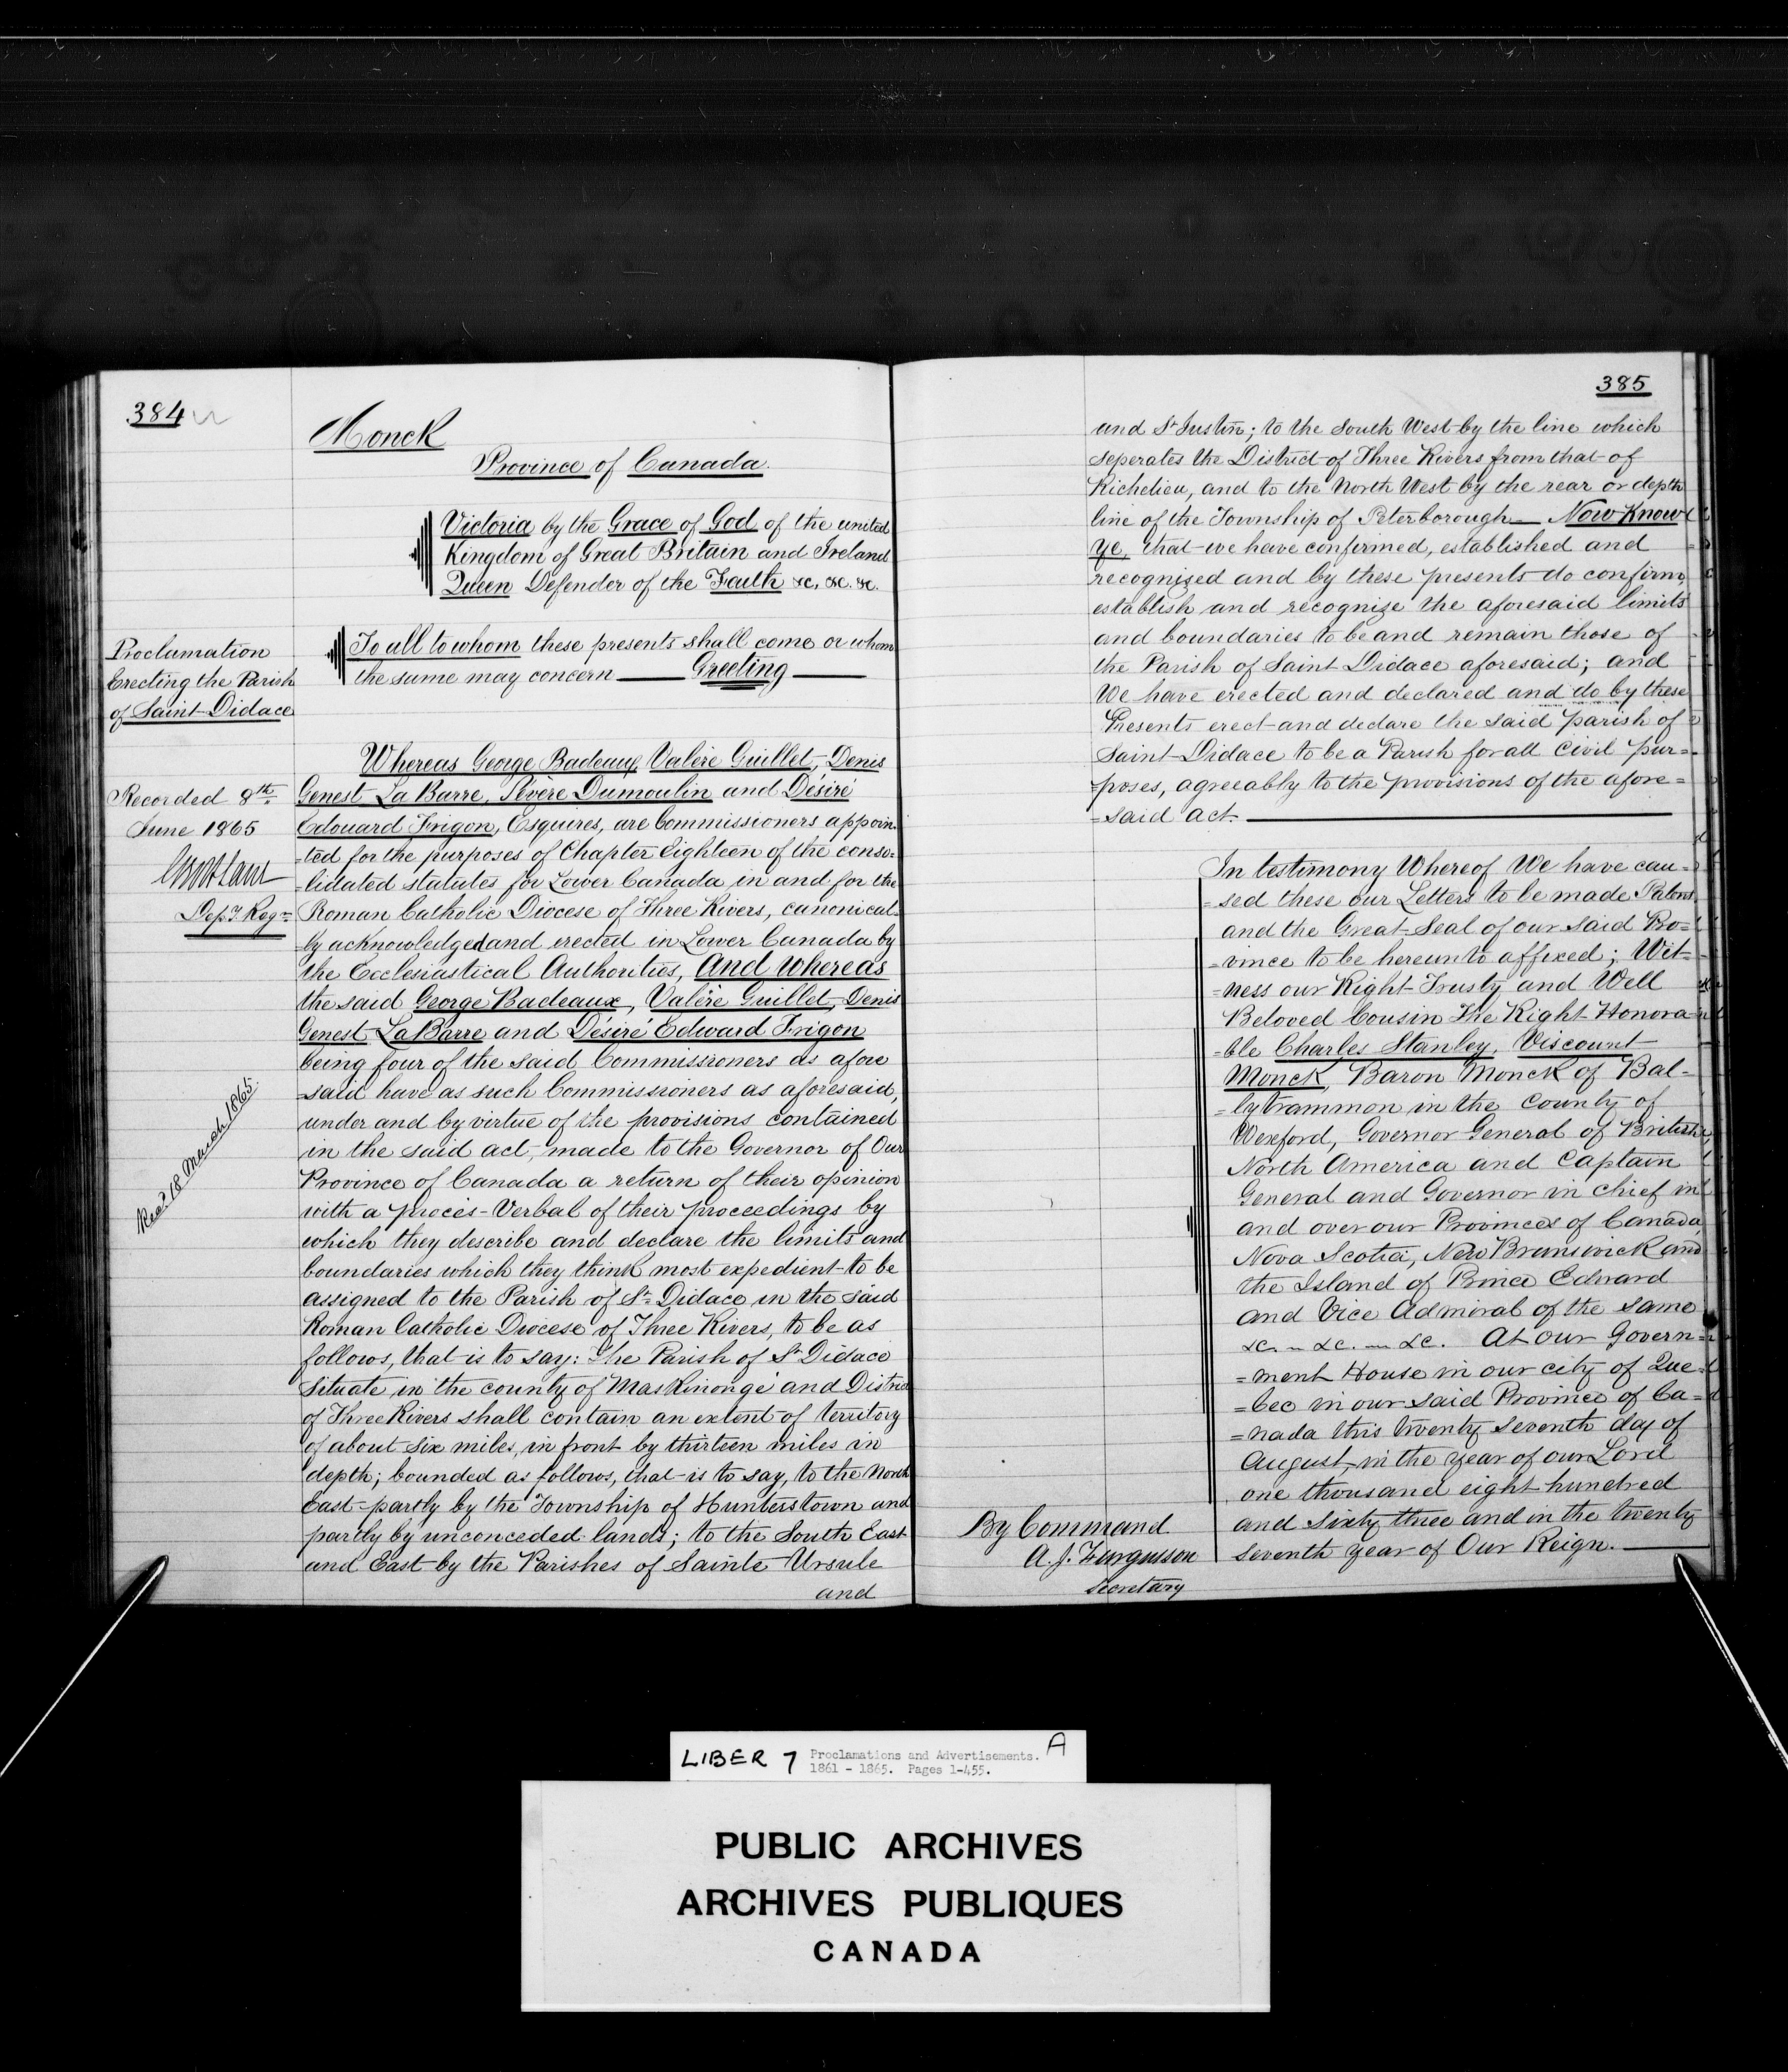 384
Monck
Province of Canada.
Victoria by the Grace of God of the united
Kingdom of Great Britain and Ireland
Queen Defender of the Faith &c, &c. &c.
To all to whom these presents shall come or whom
the same may concern — Greeting —
Proclamation
Erecting the Parish
of Saint Didace
Recorded 8th
June 1865
Depy Regr
Recd 18 March 1865.
Whereas George Badeaux, Valère Guillet, Denis
Genest La Barre, Sévère Dumoulin and Désiré
Edouard Frigon, Esquires, are Commissioners appoin-
-ted for the purposes of Chapter Eighteen of the conso-
-lidated statutes for Lower Canada in and for the
Roman Catholic Diocese of Three Rivers, canonical-
-ly acknowledged and erected in Lower Canada by
the Ecclesiastical Authorities, And Whereas
the said George Badeaux, Valère Guillet, Denis
Genest La Barre and Désiré Edward Frigon
being four of the said Commissioners as afore
-said have as such Commissioners as aforesaid,
under and by virtue of the provisions contained
in the said act, made to the Governor of Our
Province of Canada a return of their opinion
with a procès-Verbal of their proceedings by
which they describe and declare the limits and
boundaries which they think most expedient to be
assigned to the Parish of St Didace in the said
Roman Catholic Diocese of Three Rivers, to be as
follows, that is to say: The Parish of St Didace
situate in the county of Maskinongé and District
of Three Rivers shall contain an extent of territory
of about six miles, in front by thirteen miles in
depth; bounded as follows, that is to say, to the North
East - partly by the Township of Hunterstown and
partly by unconceded lands; to the South East
and East by the Parishes of Sainte Ursule
and
385
and St Justin; to the South West by the line which
seperates the District of Three Rivers from that of
Richelieu, and to the North West by the rear or depth
line of the Township of Peterborough — Now Know
Ye, that we have confirmed, established and
recognized and by these presents do confirm,
establish and recognize the aforesaid limits
and boundaries to be and remain those of
the Parish of Saint Didace aforesaid; and
We have erected and declared and do by these
Presents erect and declare the said parish of
Saint Didace to be a Parish for all civil pur=
=poses, agreeably to the provisions of the afore=
=said act. —
In testimony Whereof We have cau=
=sed these our Letters to be made Patent
and the Great Seal of our said Pro=
=vince to be hereunto affixed; Wit=
=ness our Right Trusty and Well
Beloved Cousin The Right Honora=
=ble Charles Stanley, Viscount
Monck, Baron Monck of Bal-
=lytrammon in the County of
Wexford, Governor General of British
North America and Captain
General and Governor in chief in
and over our Provinces of Canada,
Nova Scotia, New Brunswick and
the Island of Prince Edward
and Vice Admiral of the same
&c. — &c. — &c. At our Govern=
=ment House in our city of Que=
=bec in our said Province of Ca=
=nada this twenty seventh day of
August, in the year of our Lord
one thousand eight hundred
and sixty three and in the twenty
seventh year of Our Reign. —
By Command
A. J. Fergusson
Secretary
LIBER 7 Proclamations and Advertisements. A
1861 - 1865. Pages 1-455.
PUBLIC ARCHIVES
ARCHIVES PUBLIQUES
CANADA